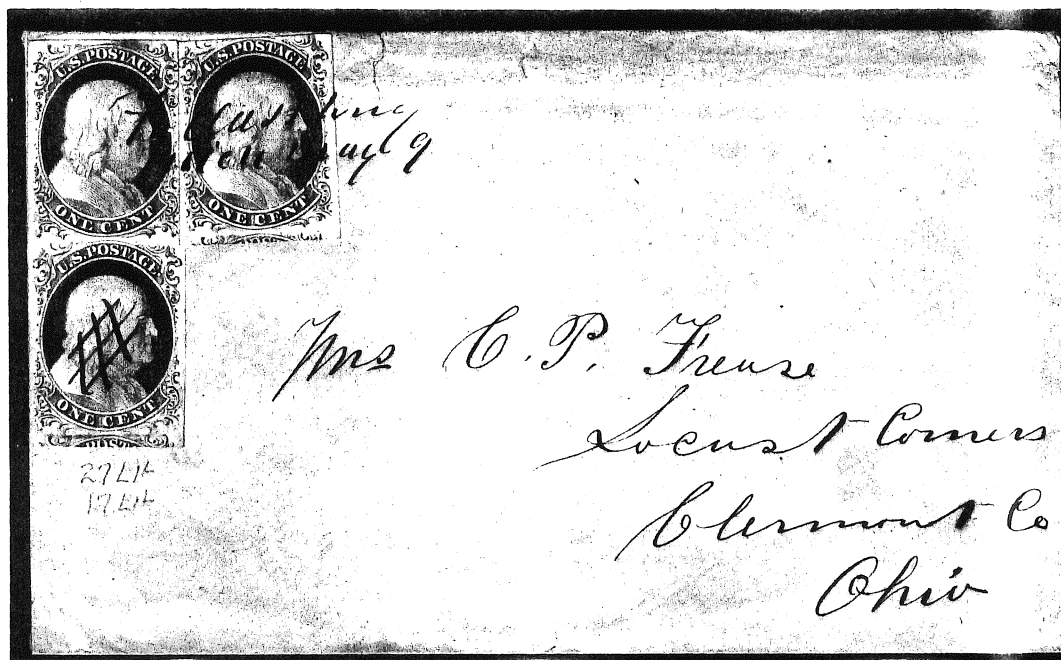 U.S. POSTAGE
ONE CENT
U.S. POSTAGE
ONE CENT
May 9
U.S. POSTAGE
ONE CENT
Mrs C. P. Frense
Locust Corners
Clermont Co
Ohio